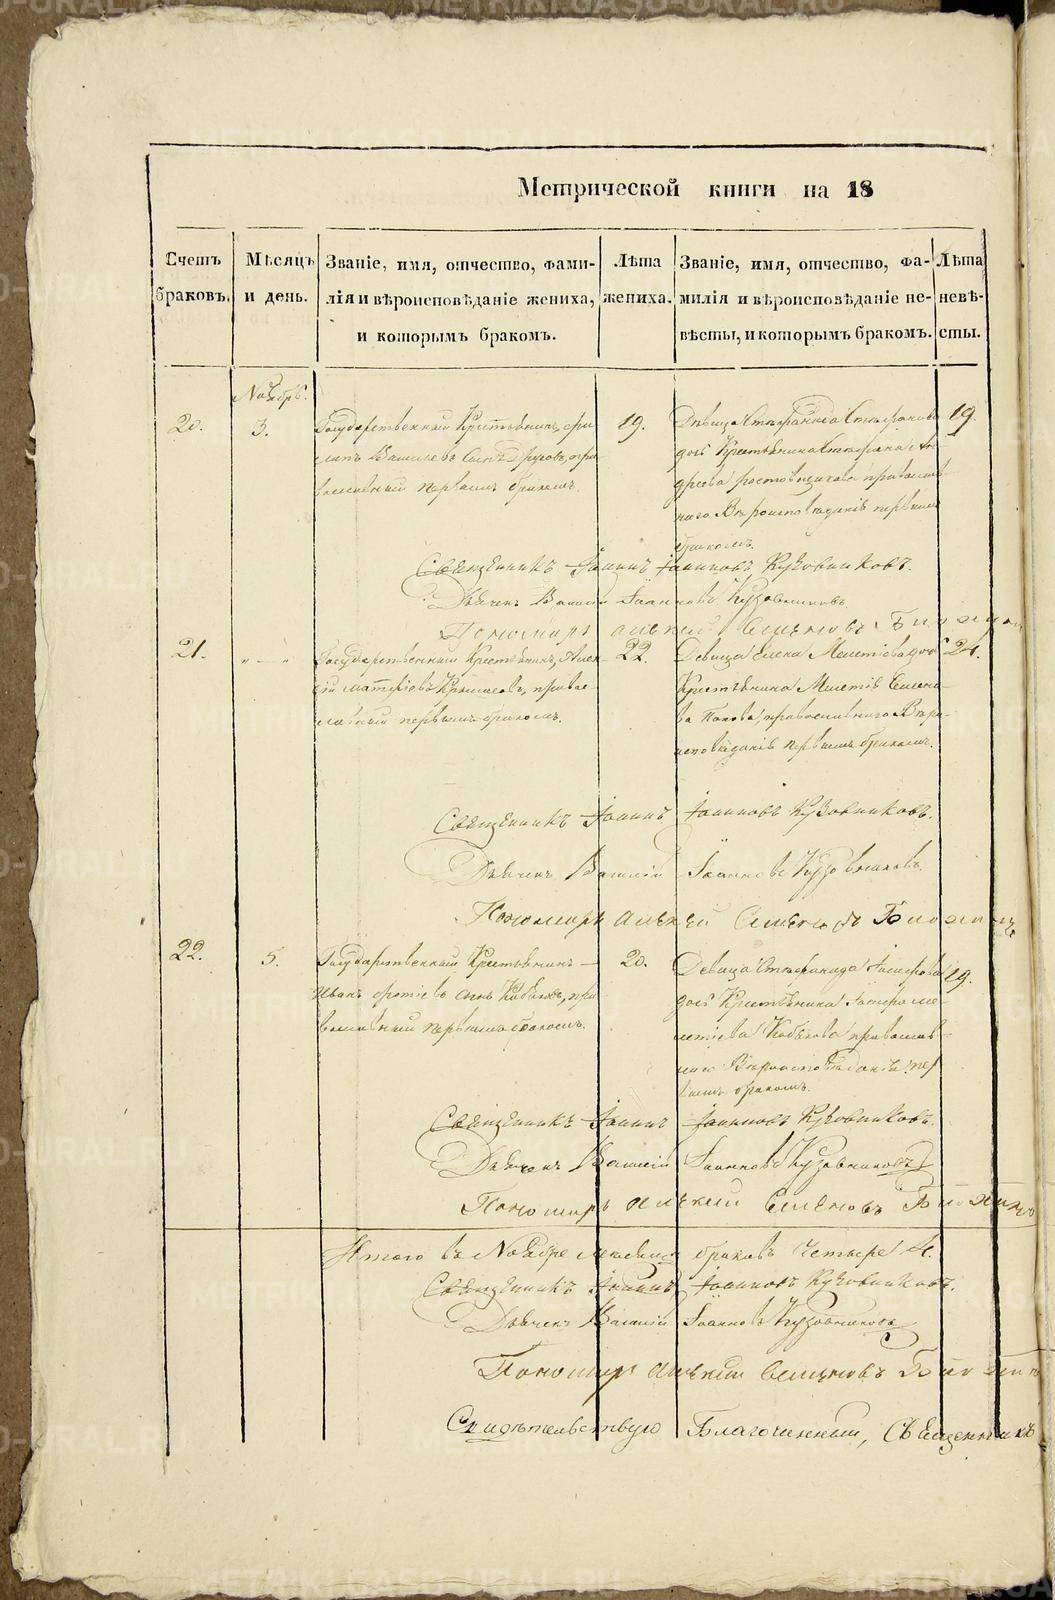 Метрической книги на 18
Счетъ браковъ.
Мѣсяцъ и день.
Званіе, имя, отчество, фами-
лія и вѣроисповѣданіе жениха,
и которымъ бракомъ.
Лѣта
жениха.
Званіе, имя, отчество, фа-
милія и вѣроисповѣданіе не-
вѣсты, и которымъ бракомъ.
Лѣта
невѣ-
сты.
Ноябрь.
20.
3.
Государственный Крестьянинъ,
Васильевъ сынъ пра
вославный первымъ бракомъ.
19.
Дѣвица Стефанида Стефанова
дочь Крестьянина Стефана Ан
дреева православ
наго Вѣроисповѣданія первымъ
бракомъ.
19.
Священникъ Іоаннъ Іоанновъ Кузовниковъ.
Дьячекъ Василій Іоанновъ Кузовниковъ.
Пономарь Алексѣй Семеновъ
21.
"—"
Государственный Крестьянинъ, Алек
сѣй православ
ный первымъ бракомъ.
22.
Девица Елена дочь
Крестьянина Семено-
ва Попова, православнаго Вѣро-
исповѣданія первымъ бракомъ.
24.
Священникъ Іоаннъ Іоанновъ Кузовниковъ.
Дьячекъ Василій Іоанновъ Кузовниковъ.
Пономарь Алексѣй Семеновъ
22.
5.
Государственный Крестьянинъ—
Иванъ сынъ пра
вославный первымъ бракомъ.
20.
Девица Стефанида
дочь Крестьянина
православ
наго Вѣроисповѣданія пер
вымъ бракомъ.
19.
Священникъ Іоаннъ Іоанновъ Кузовниковъ.
Дьячекъ Василій Іоанновъ Кузовниковъ
Пономарь Алексѣй Семеновъ
Итого въ Ноябре месяце браковъ четыре 4.
Священникъ Іоаннъ Іоанновъ Кузовниковъ.
Дьячекъ Василій Іоанновъ Кузовниковъ
Пономарь Алексѣй Семеновъ
Свидѣтельствую Благочинный, Священникъ
METRIKI.GASO-URAL.RU